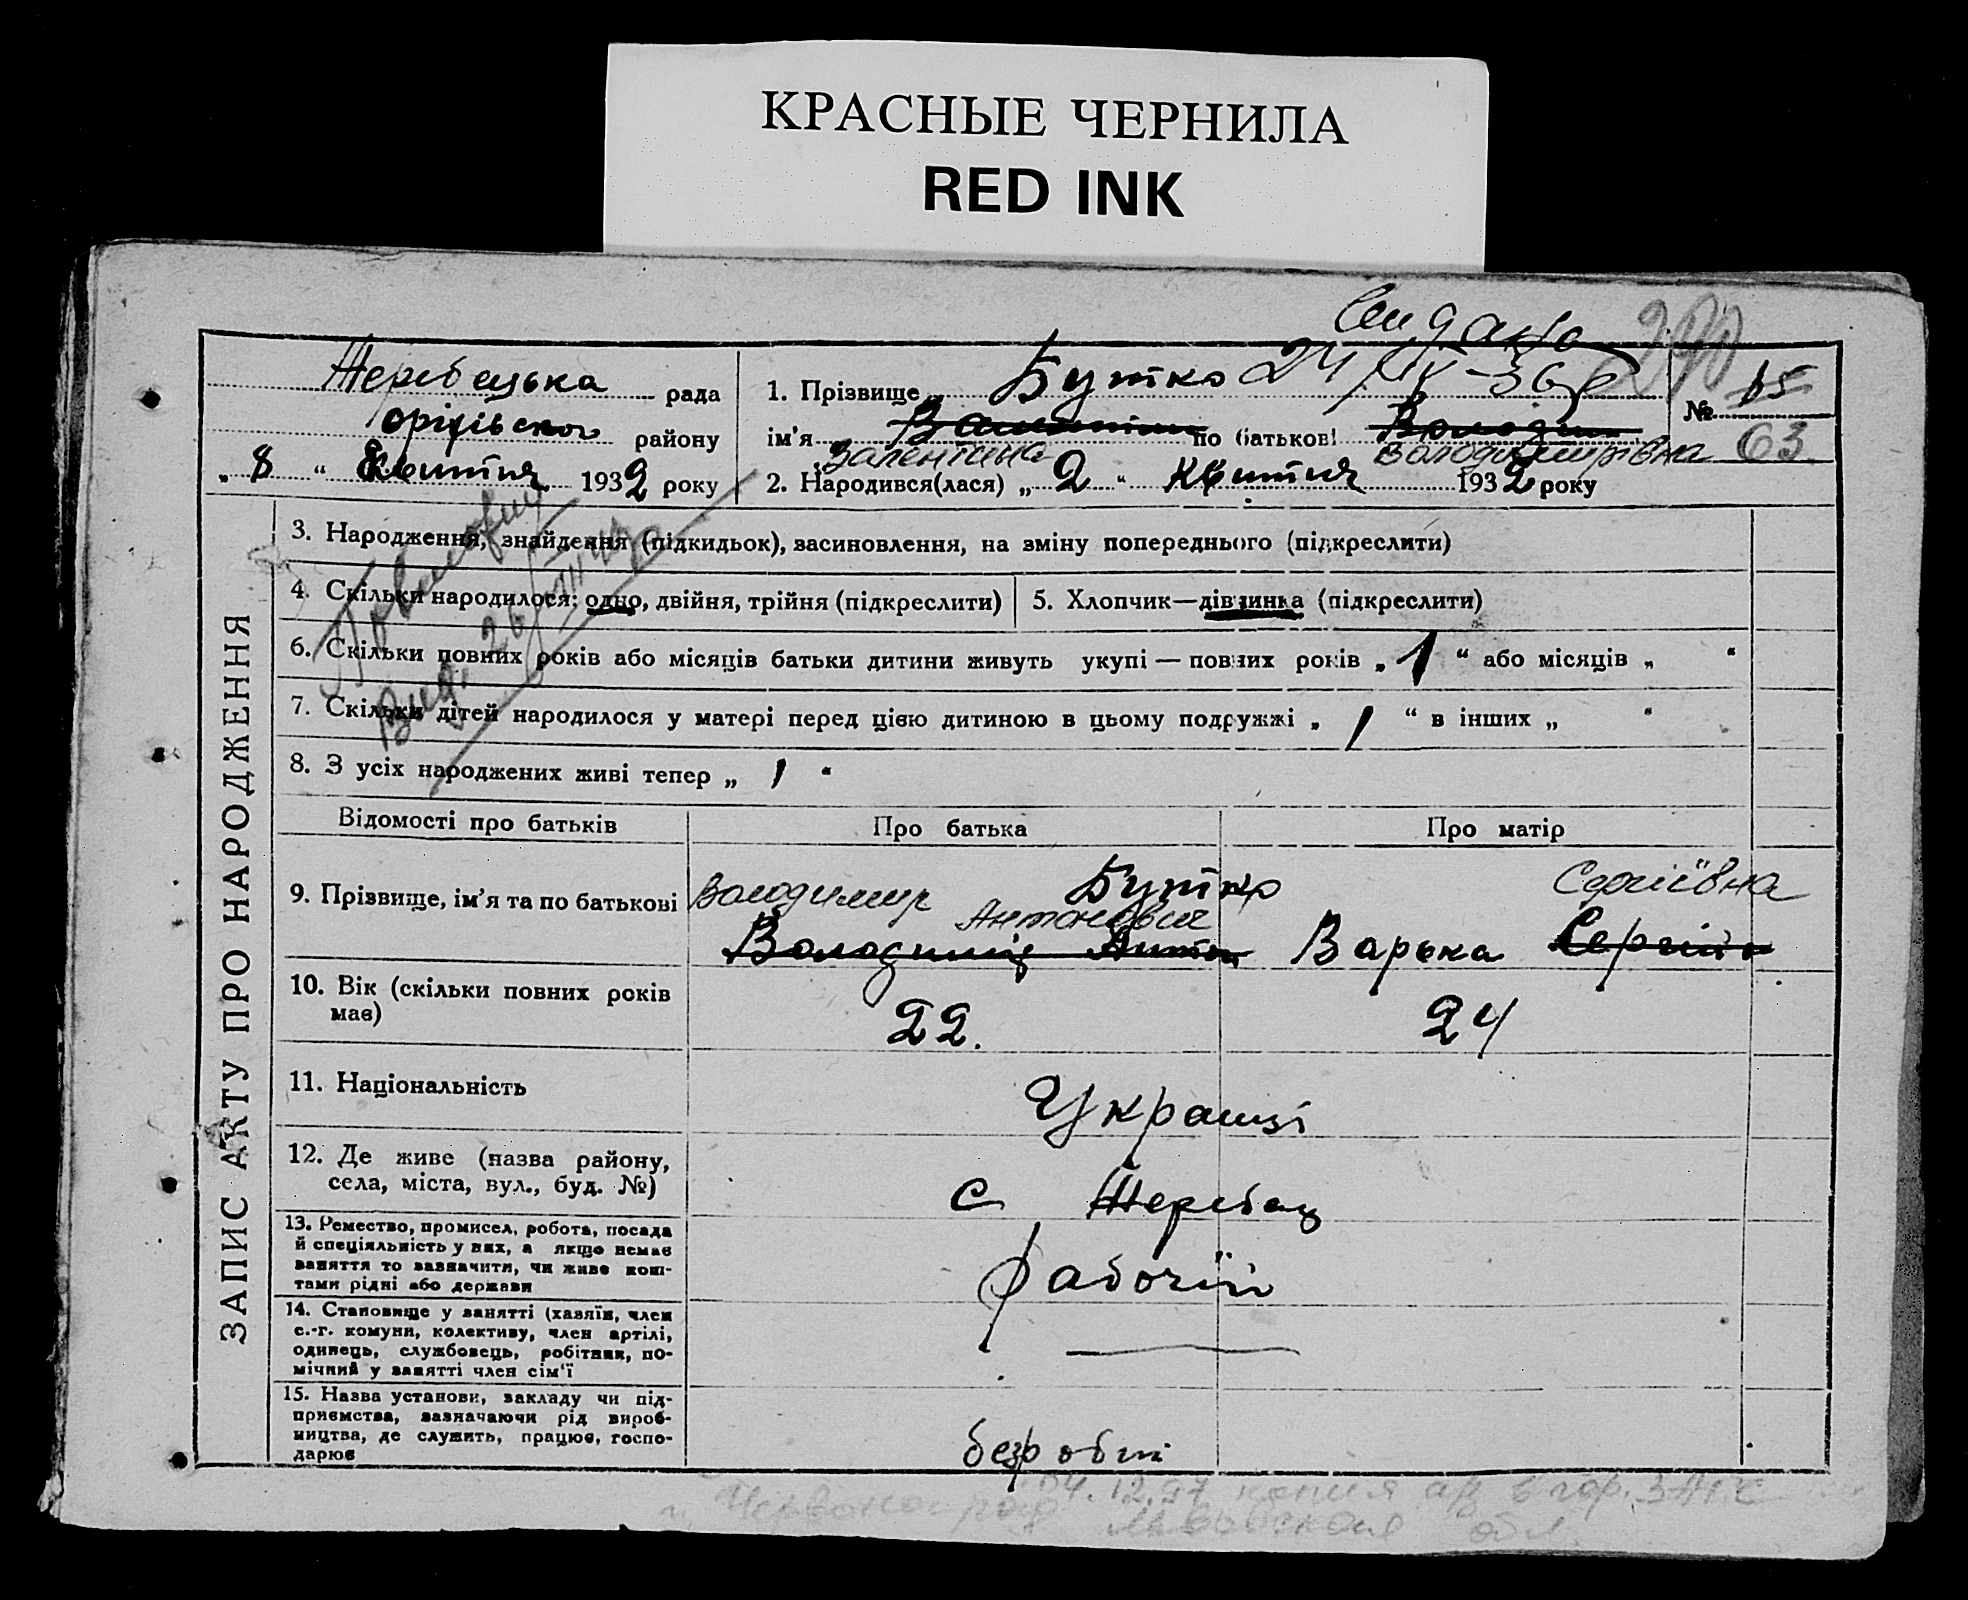 КРАСНЫЕ ЧЕРНИЛА
RED INK
24/IV-36р
Жеребецька рада
оріхівського району
„ 8 “ Квітня 1932 року
1. Прізвище Бутко
№ 65
63
ім'я по батькові
Валентина Володимирівна
2. Народився(лася) „ 2 “ Квітня 1932 року
ЗАПИС АКТУ ПРО НАРОДЖЕННЯ
3. Народження, знайдення (підкидьок), засиновлення, на зміну попереднього (підкреслити)
4. Скільки народилося: одно, двійня, трійня (підкреслити)
5. Хлопчик—дівчинка (підкреслити)
6. Скільки повних років або місяців батьки дитини живуть укупі — повних років „ 1 “ або місяців „ “
7. Скільки дітей народилося у матері перед цією дитиною в цьому подружжі „ 1 “ в інших „ “
8. З усіх народжених живі тепер „ 1 “
Відомості про батьків
Про батька
Про матір
9. Прізвище, ім'я та по батькові
Володимир Бутко
Антонович
Володимир Антон
Сергіївна
Варька Сергій
10. Вік (скільки повних років має)
22.
24
11. Національність
Українці
12. Де живе (назва району,
села, міста, вул., буд. №)
с Жеребец
13. Ремество, промисел, робота, посада
й спеціяльність у них, а якщо немає
заняття то зазначити, чи живе кош-
тами рідні або держави
рабочій
14. Становище у занятті (хазяїн, член
с.-г. комуни, колективу, член артілі,
одинець, службовець, робітник, по-
мічний у занятті член сім'ї
15. Назва установи, закладу чи під-
приємства, зазначаючи рід вироб-
ництва, де служить, працює, госпо-
дарює
безробіт
04.12.97 копия а/з в гор. ЗАГС
г. Червоноград Львовской обл.